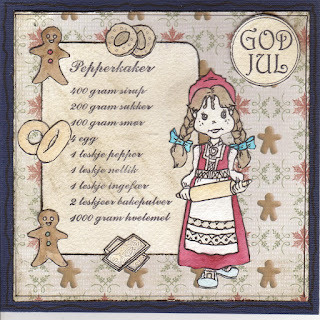 GOD
JUL
Pepperkaker
400 gram sirup
200 gram sukker
100 gram smør
4 egg
1 teskje pepper
1 teskje nellik
1 teskje ingefær
2 teskjeer bakepulver
1000 gram hvetemel